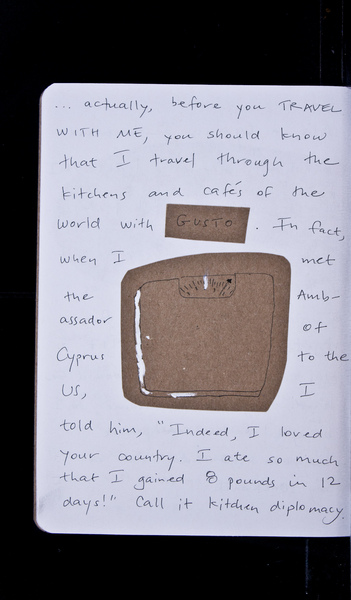 ... actually, before you TRAVEL
WITH ME, you should know
that I travel through the
kitchens and café's of the
world with GUSTO. In fact,
when I met
the Amb-
assador of
Cyprus to the
US, I
told him, "Indeed, I loved
your country. I ate so much
that I gained 8 pounds in 12
days!" Call it kitchen diplomacy.